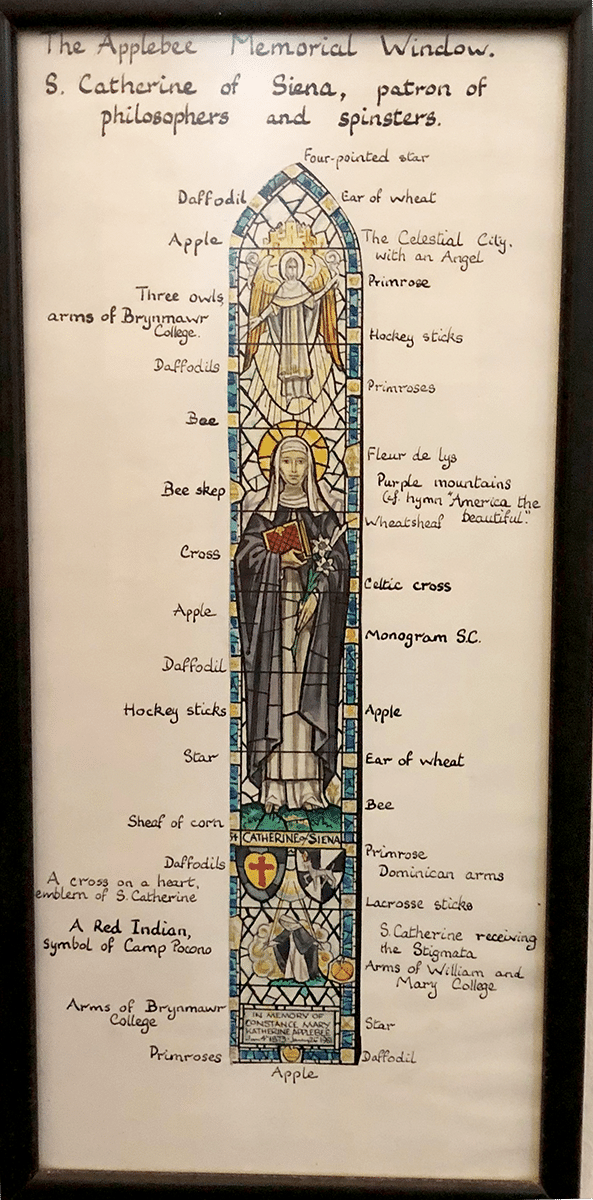 The Applebee Memorial Window.
S. Catherine of Siena, patron of
philosophers and spinsters.
Four-pointed star
Daffodil
Ear of wheat
Apple
The Celestial City.
with an Angel
Primrose
Three owls,
arms of Brynmawr
College.
Hockey sticks
Daffodils
Primroses
Bee
Fleur de lys
Bee skep
Purple mountains
(cf. hymn "America the
beautiful."
Wheatsheaf
Cross
Celtic cross
Apple
Monogram S.C.
Daffodil
Hockey sticks
Apple
Star
Ear of wheat
Bee
Sheaf of corn
St CATHERINE of SIENA
Daffodils
Primrose
Dominican arms
A cross on a heart,
emblem of S. Catherine
Lacrosse sticks
A Red Indian,
symbol of Camp Pocono
S. Catherine receiving
the Stigmata
Arms of William and
Mary College
Arms of Brynmawr
College
IN MEMORY OF
CONSTANCE MARY
KATHERINE APPLEBEE
Star
Primroses
Daffodil
Apple